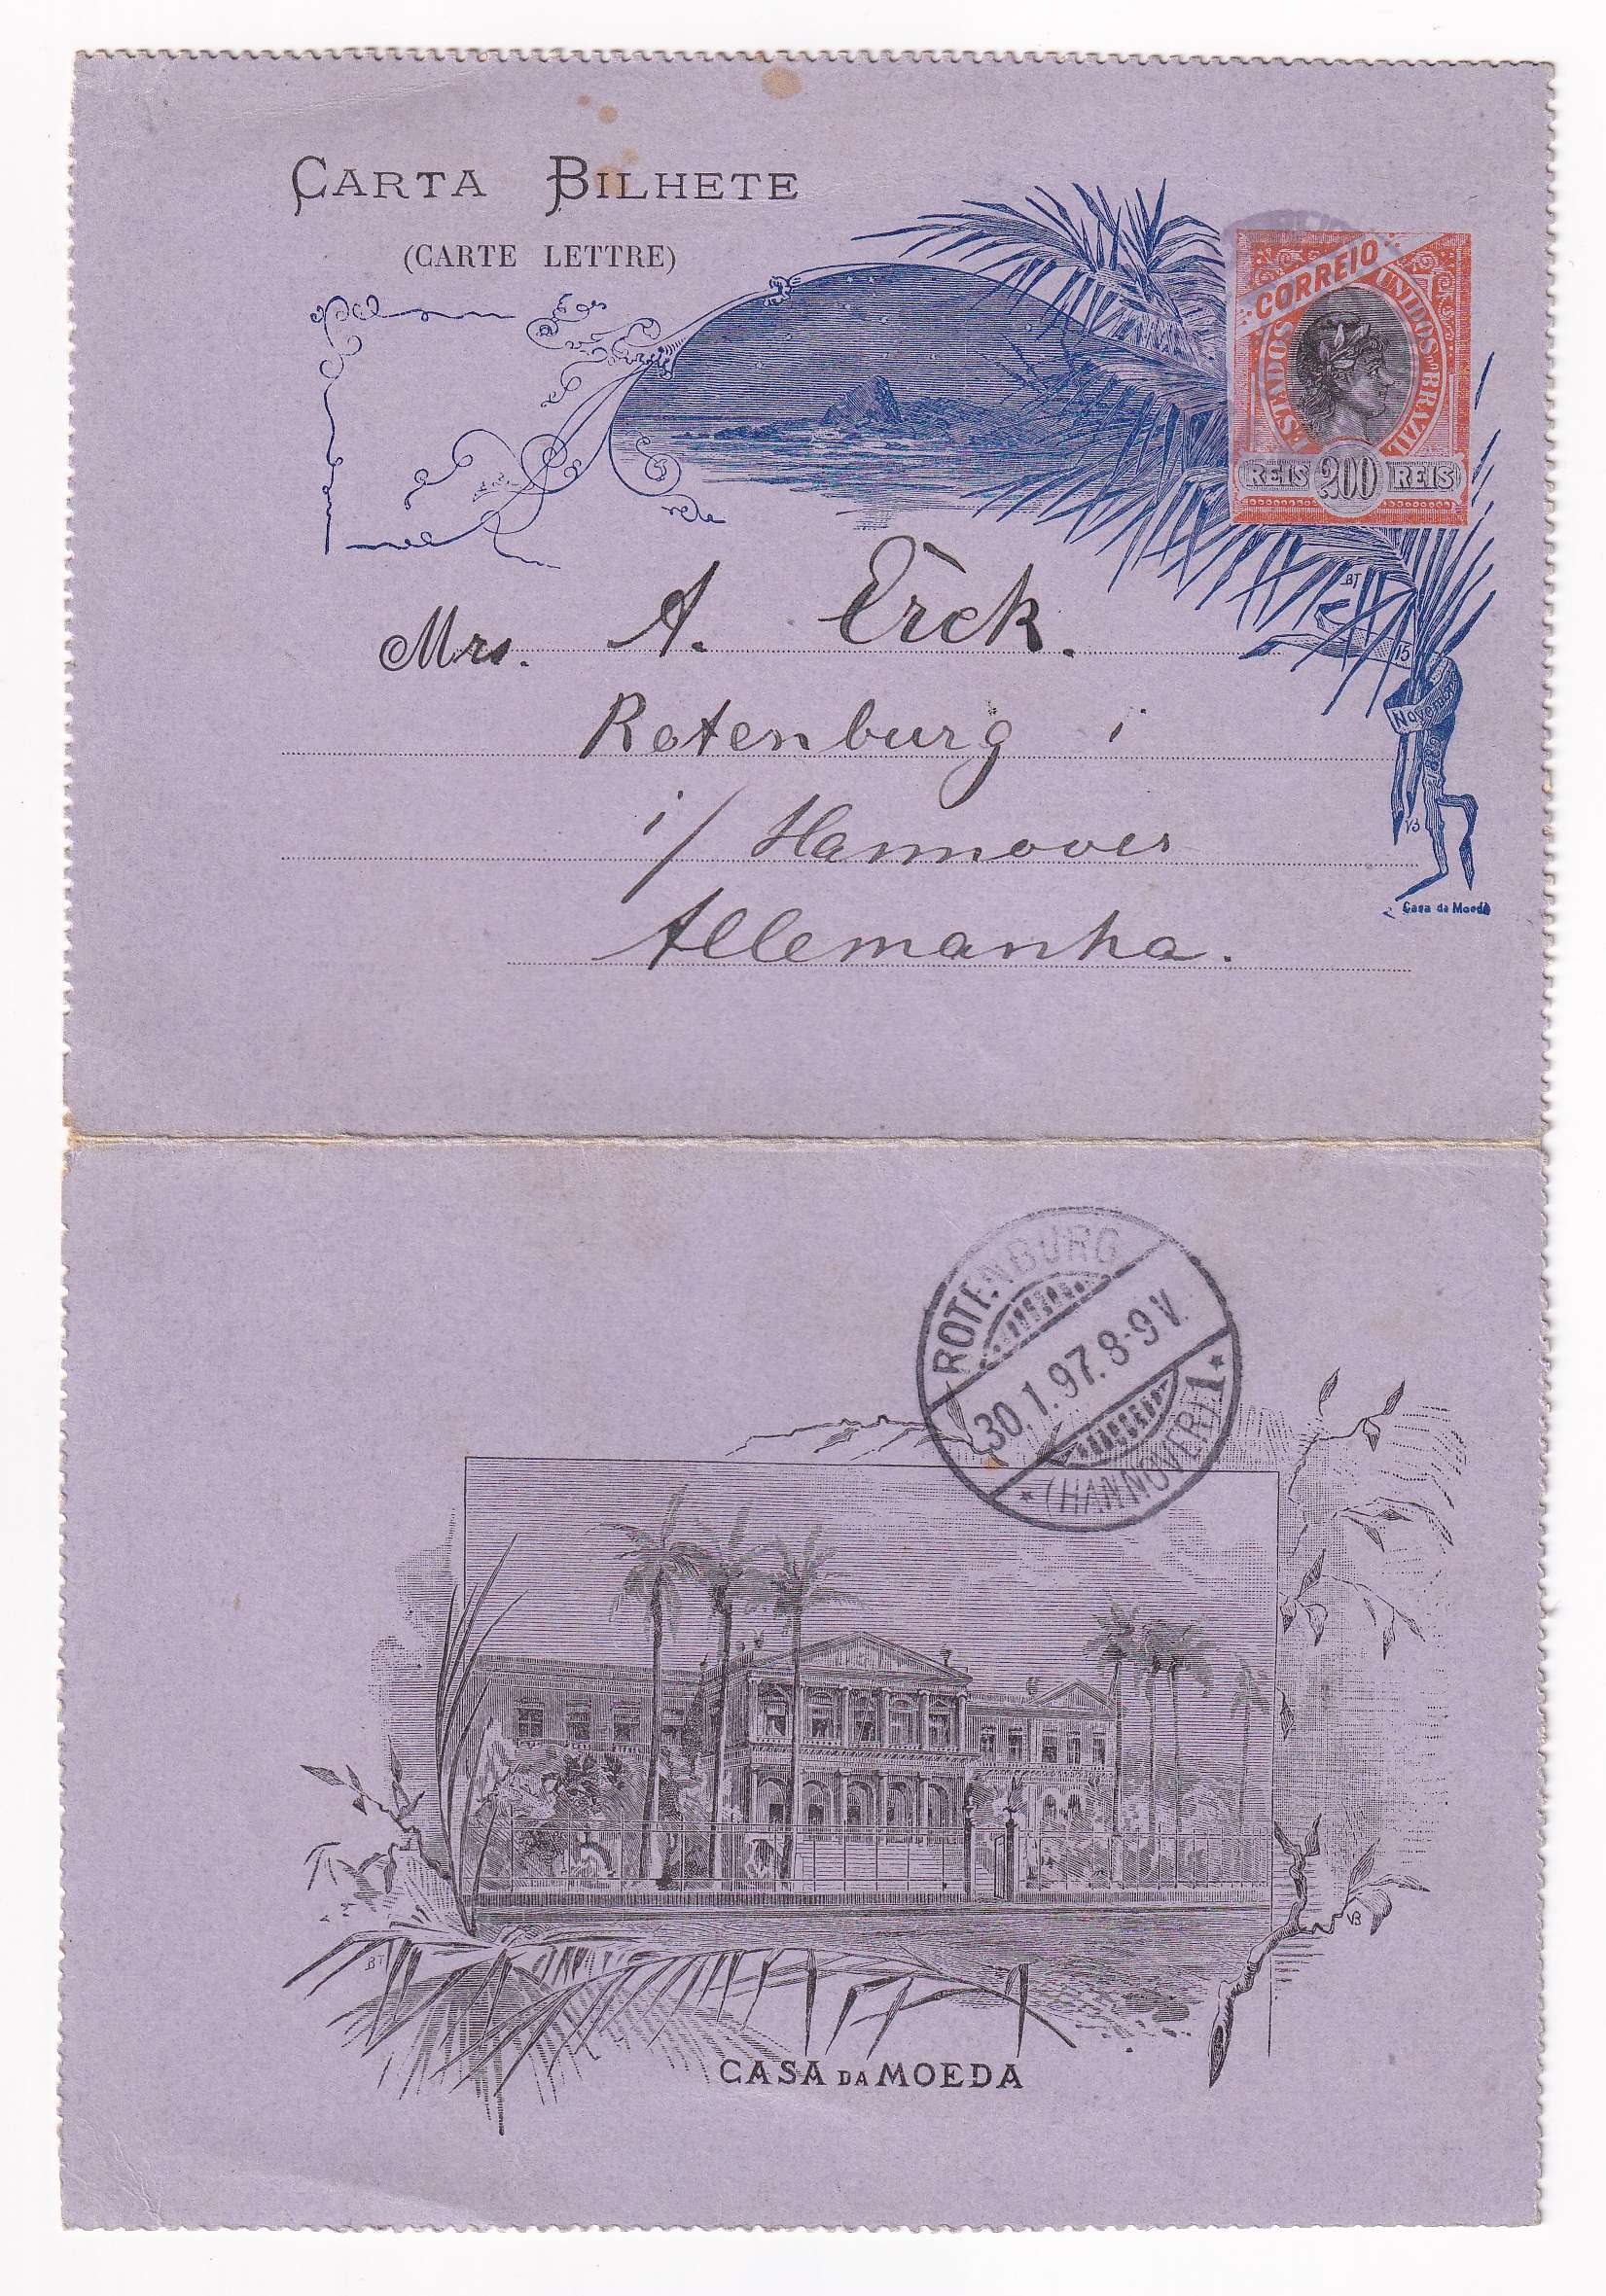 CARTA BILHETE
(CARTE LETTRE)
CORREIO
ESTADOS UNIDOS DO BRAZIL
REIS 200 REIS
BT
15
Novembro
VB
Casa da Moeda
Mrs. A. Erck.
Rotenburg i
i/ Hannover
Allemanha.
ROTENBURG
30.1.97.8-9V.
* (HANNOVER) 1 *
BT
VB
CASA DA MOEDA